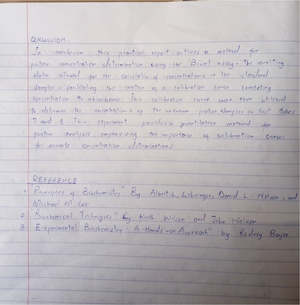 CONCLUSION
In conclusion this practical report outlines a method for
protein concentration determination using the Biuret assay. The resulting
data allowed for the calculation of concentrations in the standard
samples facilitating the creation of a calibration curve correlating
concentration to absorbance. This calibration curve was then utilized
to determine the concentration of the unknown protein samples in test tubes
7 and 8. This experiment provides a quantitative method for
protein analysis emphasizing the importance of calibration curves
for accurate concentration determinations.
REFERENCE
"Principles of Biochemistry" By Albert L. Lehninger, David L. Nelson, and
Michael M. Cox
2. Biochemical Techniques" By Keith Wilson and John Walker
3. Experimental Biochemistry: A Hands-on Approach" by Rodney Boyer